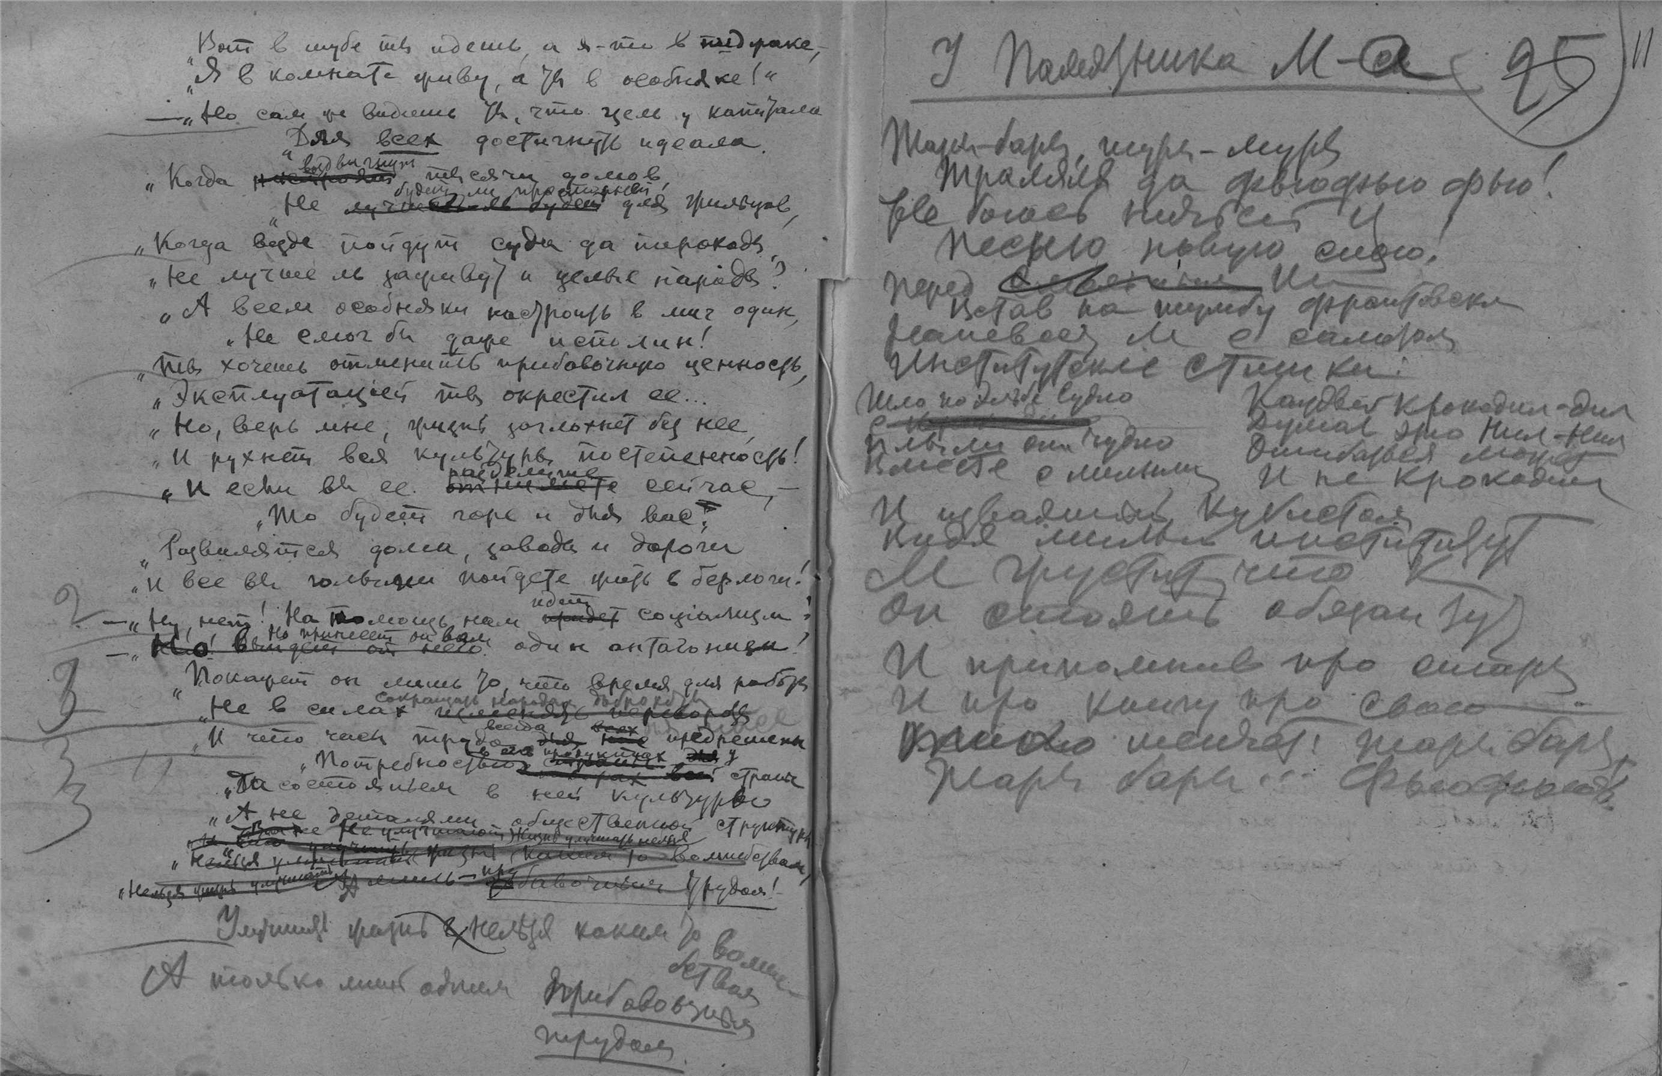 „Вот в шубе ты идешь, а я-то в пиджаке,
„Я в комнате живу, а ты в особняке!"
— „Но сам не видишь ты, что цель у капитала
„Для всех достигнуть идеала.
„Когда воздвигнут тысячи домов,
„Не будет ли просторней для жильцов,
„Когда везде пойдут суда да пароходы,
„Не лучше ль заживут и целые народы?
„А всем особняки построить в миг один,
„Не смог бы даже исполин!
„Ты хочешь отменить прибавочную ценность,
„Эксплуатацией ты окрестил ее...
„Но, верь мне, жизнь заглохнет без нее,
„И рухнет вся культуры постепенность!
„И если вы ее разделите сейчас, —
„То будет горе и для вас:
„Развалятся дома, заводы и дороги
„И все вы голыми пойдете жить в берлоги!
— „Ну, нет! На помощь нам идет социализм!
— „Но принесет он вам один антагонизм!
„Покажет он лишь то, что время для работы
„Не в силах сокращать народам
„И что часы труда всегда предрешены
„Потребностью в его продуктах у страны
„Да состояньем в ней культуры
„А не деталями общественной структуры
Улучшить жизнь нельзя каким то волшебством
А только лишь одним прибавочным
трудом.
У Памятника М-а 25 11
Жари-бари, шури-мури
Траляля да фьюфью фью!
Не боюсь
Песню новую спою!
Перед
Встав на тумбу франтовски
Напевает М с
Институтские стишки:
Шло по Эльбе судно
Плыли они чудно
Вместе с милым
Каждый крокодил-дил
Думал это Нил-Нил
Ошибаться может
И не крокодил
И изваянный кубистом
Видя милый институт
М грустит, что К
Он стоять обязан тут
И припомнив про
И про книгу про свою
шепчет: жари бари,
Жари бари ... Фьюфьюфью!